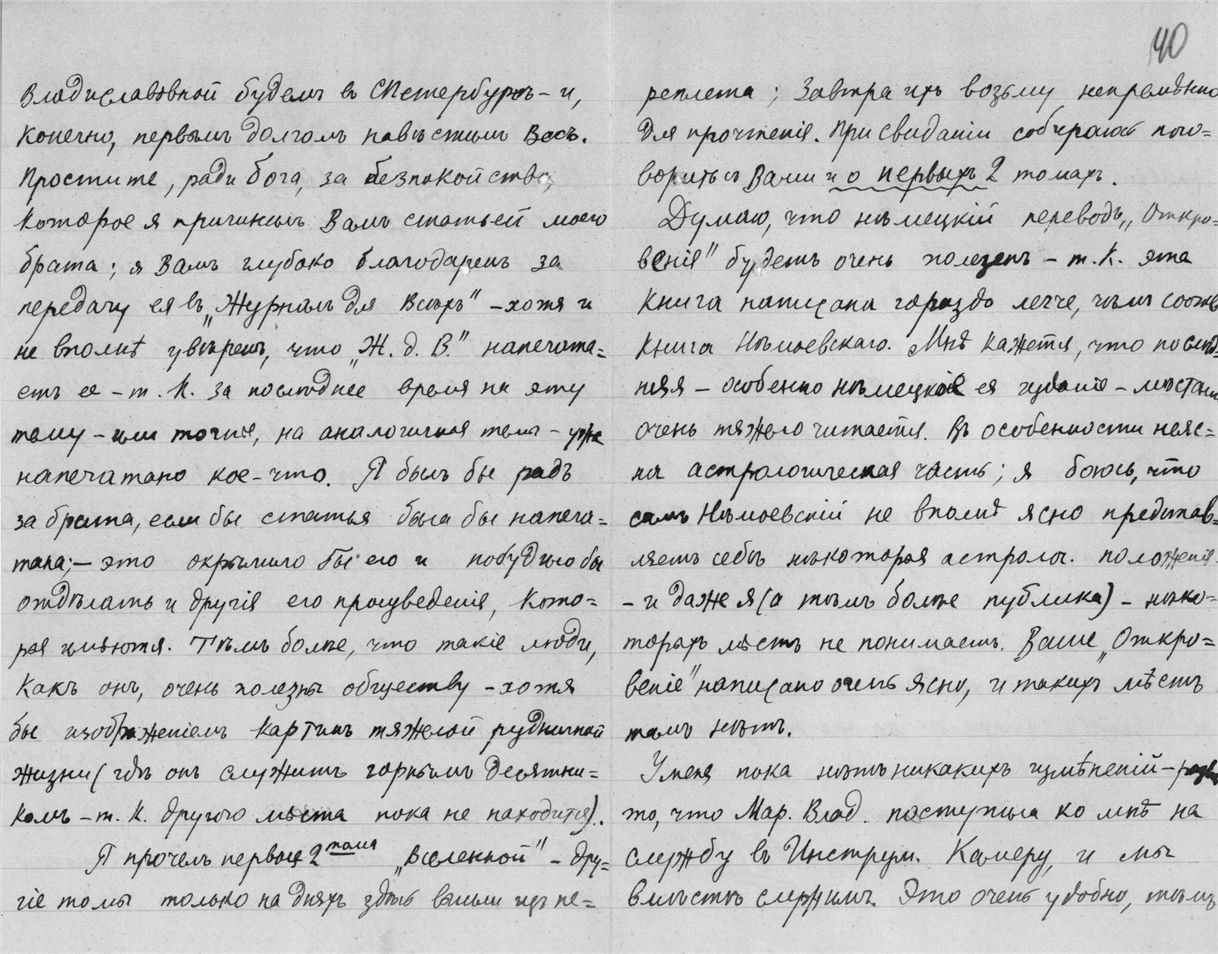 Владиславовной будемъ въ СПетербургѣ – и,
конечно, первымъ долгомъ навѣстимъ Васъ.
Простите, ради бога, за безпокойство,
которое я причинилъ Вамъ статьей моего
брата; я Вамъ глубоко благодаренъ за
передачу ея въ „Журналъ для Всѣхъ" – хотя и
не вполнѣ увѣренъ, что „Ж. д. В." напечата=
етъ ее – т. к. за послѣднее время на эту
тему – или точнѣе, на аналогичныя темы – уже
напечатано кое-что. Я былъ бы радъ
за брата, если бы статья была бы напеча=
тана; – это окрылило бы его и побудило бы
отдѣлать и другія его произведенія, кото=
рыя имѣются. Тѣмъ болѣе, что такіе люди,
какъ онъ, очень полезны обществу – хотя
бы изображеніемъ картинъ тяжелой рудничной
жизни (гдѣ онъ служитъ горнымъ десятни=
комъ – т. к. другого мѣста пока не находится).
Я прочелъ первые 2 тома „Вселенной" – дру=
гіе томы только на дняхъ здѣсь вышли изъ пе=
40
реплета; завтра ихъ возьму непремѣнно
для прочтенія. При свиданіи собираюсь пого=
ворить съ Вами и о первыхъ 2 томахъ.
Думаю, что нѣмецкій переводъ „Откро=
венія" будетъ очень полезенъ – т. к. эта
книга написана гораздо легче, чѣмъ соотв.
книга Нѣмоевскаго. Мнѣ кажется, что послѣд=
няя – особенно нѣмецкое ея изданіе – мѣстами
очень тяжело читается. Въ особенности неяс=
на астрологическая часть; я боюсь, что
самъ Нѣмоевскій не вполнѣ ясно представ=
ляетъ себѣ нѣкоторыя астролог. положенія
– и даже я (а тѣмъ болѣе публика) – нѣко=
торыхъ мѣстъ не понимаемъ. Ваше „Откро=
веніе" написано очень ясно, и такихъ мѣстъ
тамъ нѣтъ.
У меня пока нѣтъ никакихъ измѣненій – развѣ
то, что Мар. Влад. поступила ко мнѣ на
службу въ Инструм. Камеру, и мы
вмѣстѣ служимъ. Это очень удобно, тѣмъ